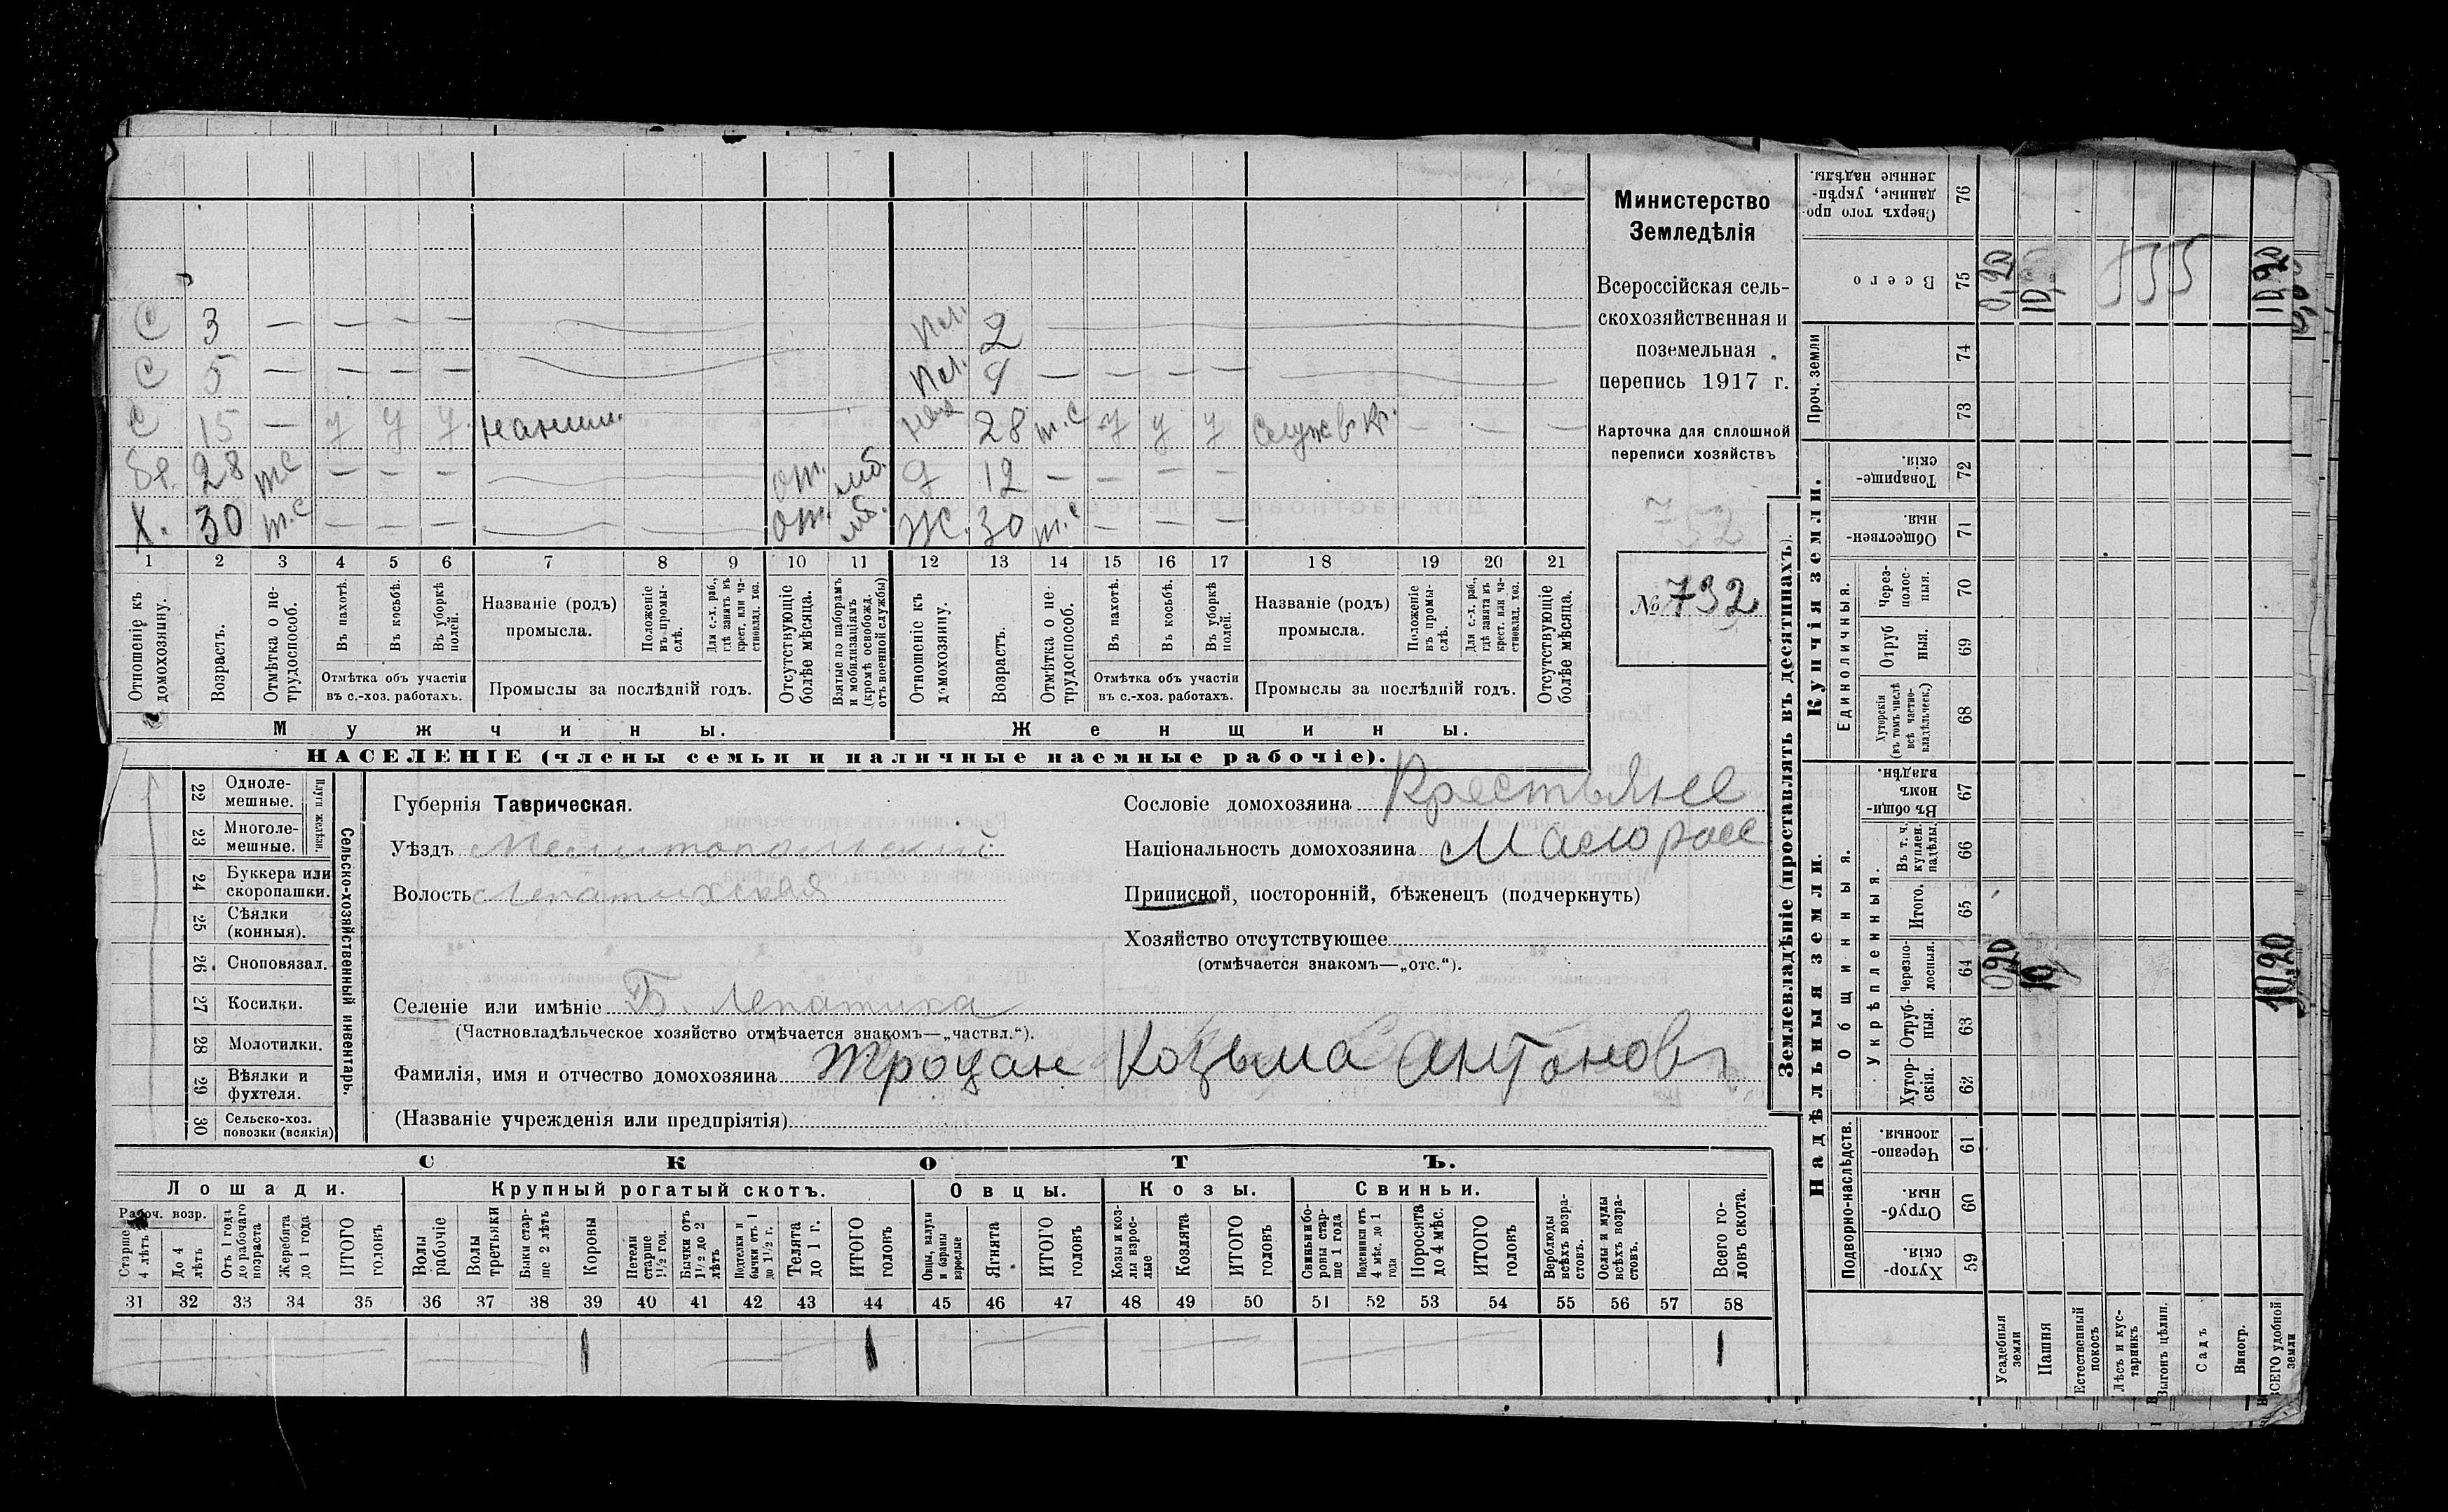 С 3 — — — — Пл. 2
С 5 — — — — Пл. 4 — — — —
С 15 — у у у наним. 28 т.с у у у Служ в кр.
бр. 28 тс — — — от. мб. д 12 — — — —
Х. 30 т.с — — — от. мб. Ж. 30 т.с — — —
1 2 3 4 5 6 7 8 9 10 11 12 13 14 15 16 17 18 19 20 21
Отношеніе къ домохозяину.
Возрастъ.
Отмѣтка о нетрудоспособ.
Въ пахотѣ.
Въ косьбѣ.
Въ уборкѣ полей.
Отмѣтка объ участіи
въ с.-хоз. работахъ.
Названіе (родъ)
промысла.
Положеніе въ промыслѣ.
Для с.-х. раб., гдѣ занятъ въ крест. или частновлад. хоз.
Промыслы за послѣдній годъ.
Отсутствующіе болѣе мѣсяца.
Взятые по наборамъ и мобилизаціямъ (кромѣ освобожд. отъ военной службы)
Отношеніе къ домохозяину.
Возрастъ.
Отмѣтка о нетрудоспособ.
Въ пахотѣ.
Въ косьбѣ.
Въ уборкѣ полей.
Отмѣтка объ участіи
въ с.-хоз. работахъ.
Названіе (родъ)
промысла.
Положеніе въ промыслѣ.
Для с.-х. раб., гдѣ занята въ крест. или частновлад. хоз.
Промыслы за послѣдній годъ.
Отсутствующіе болѣе мѣсяца.
Мужчины.
Женщины.
НАСЕЛЕНІЕ (члены семьи и наличные наемные рабочіе).
Министерство
Земледѣлія
Всероссійская сель-
скохозяйственная и
поземельная
перепись 1917 г.
Карточка для сплошной
переписи хозяйствъ
732
№ 732
Губернія Таврическая.
Уѣздъ Мелитопольский
Волость Лепатихская
Сословіе домохозяина Крестьяне
Національность домохозяина Малорос
Приписной, посторонній, бѣженецъ (подчеркнуть)
Хозяйство отсутствующее
(отмѣчается знакомъ—„отс.“).
Селеніе или имѣніе Б. Лепатиха
(Частновладѣльческое хозяйство отмѣчается знакомъ—„частвл.“).
Фамилія, имя и отчество домохозяина Троцан Козьма Антонов
(Названіе учрежденія или предпріятія)
Сельско-хозяйственный инвентарь.
Плуги желѣзн.
22 Одноле-
мешные.
23 Многоле-
мешные.
24 Буккера или
скоропашки.
25 Сѣялки
(конныя).
26 Сноповязал.
27 Косилки.
28 Молотилки.
29 Вѣялки и
фухтеля.
30 Сельско-хоз.
повозки (всякія)
СКОТЪ.
Лошади. Крупный рогатый скотъ. Овцы. Козы. Свиньи.
Рабоч. возр.
Старше 4 лѣтъ
До 4 лѣтъ
Отъ 1 года до рабочаго возраста
Жеребята до 1 года
ИТОГО головъ
Волы рабочіе
Волы третьяки
Быки старше 2 лѣтъ
Коровы
Нетели старше 1½ год.
Бычки отъ 1½ до 2 лѣтъ
Подтелки и бычки отъ 1 до 1½ г.
Телята до 1 г.
ИТОГО головъ
Овцы, валухи и бараны взрослые
Ягнята
ИТОГО головъ
Козы и козлы взрослые
Козлята
ИТОГО головъ
Свиньи и боровы старше 1 года
Подсвинки отъ 4 мѣс. до 1 года
Поросята до 4 мѣс.
ИТОГО головъ
Верблюды всѣхъ возрастовъ.
Ослы и мулы всѣхъ возрастовъ.
Всего головъ скота.
31 32 33 34 35 36 37 38 39 40 41 42 43 44 45 46 47 48 49 50 51 52 53 54 55 56 57 58
1 1 1
Землевладѣніе (проставлять въ десятинахъ).
Купчія земли.
Надѣльныя земли.
Сверхъ того проданные, укрѣпленные надѣлы. 76
Всего 75
0,20 10 10,20
Проч. земли 74 73
Товарищескія. 72
Общественныя. 71
Единоличныя.
Черезполосныя. 70
Отрубныя. 69
Хуторскія (въ томъ числѣ всѣ частновладѣльческ.) 68
Общинныя.
Въ общинномъ владѣн. 67
Укрѣпленныя.
Въ т. ч. куплен. надѣлы. 66
Итого. 65
Черезполосныя. 64
0,20 10 10,20
Отрубныя. 63
Хуторскія. 62
Подворно-наслѣдств.
Черезполосныя. 61
Отрубныя. 60
Хуторскія. 59
Усадебныя земли
Пашня
Естественный покосъ
Лѣсъ и кустарникъ
Выгонъ цѣлин.
Садъ
Виногр.
ВСЕГО удобной земли